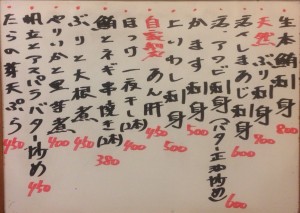 生本鮪刺身 800
天然ぶり刺身 400
活〆しまあじ刺身 600
活アワビ刺身(バター正油炒め) 600
かます刺身 500
上いわし刺身 500
自家製あん肝 450
ほっけ一夜干し(1本)
鮪とネギ串焼き(2本) 380
ぶりと大根煮 450
やりいかと里芋煮 400
帆立とアスパラバター炒め 450
たらの芽天ぷら 450